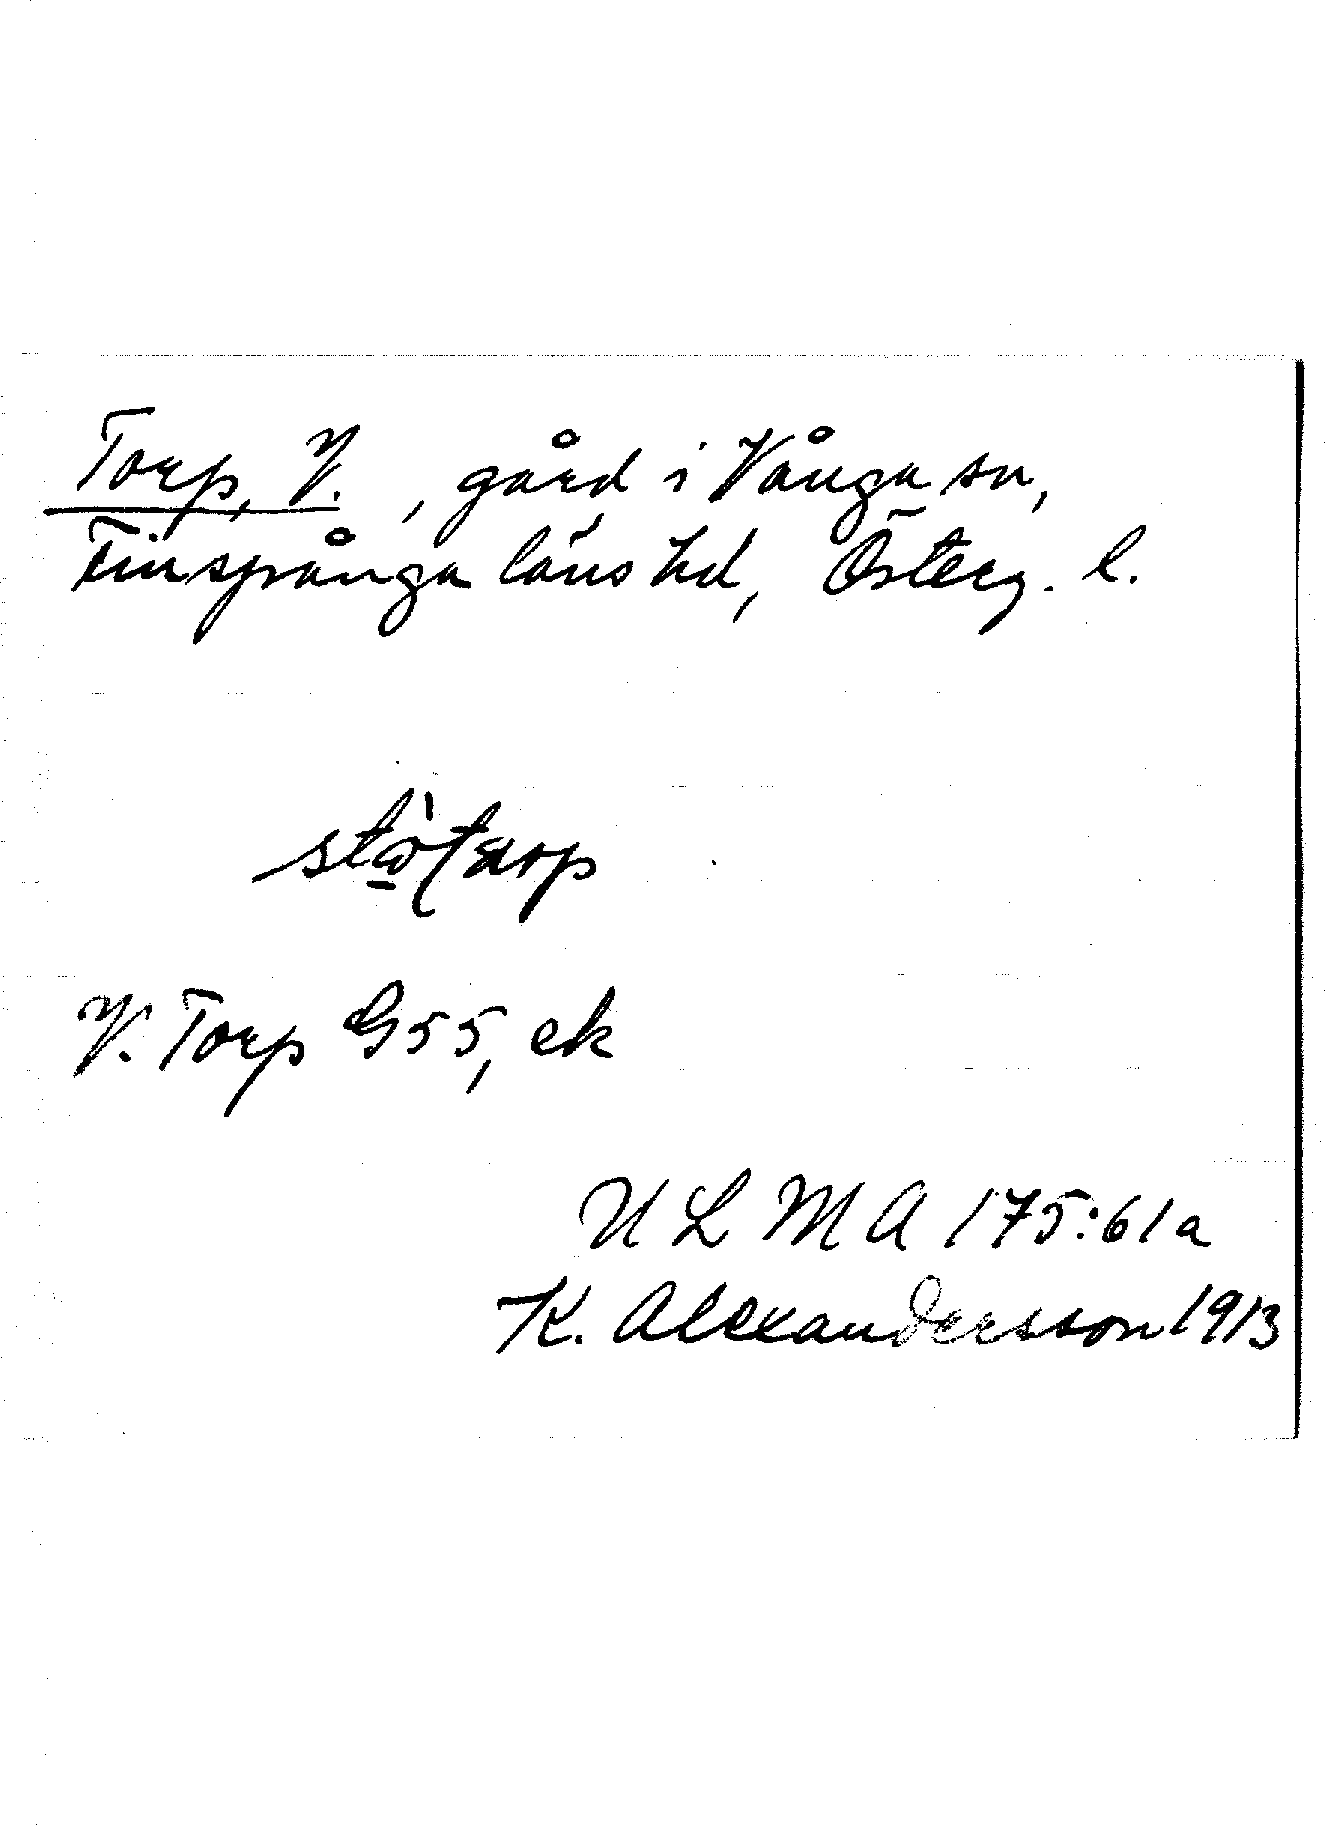 Torp, V., gård i Vånga sn,
Finspånga läns hd, Österg. l.
V. Torp G55, ek
ULMA 175:61a
K. Alexandersson 1913